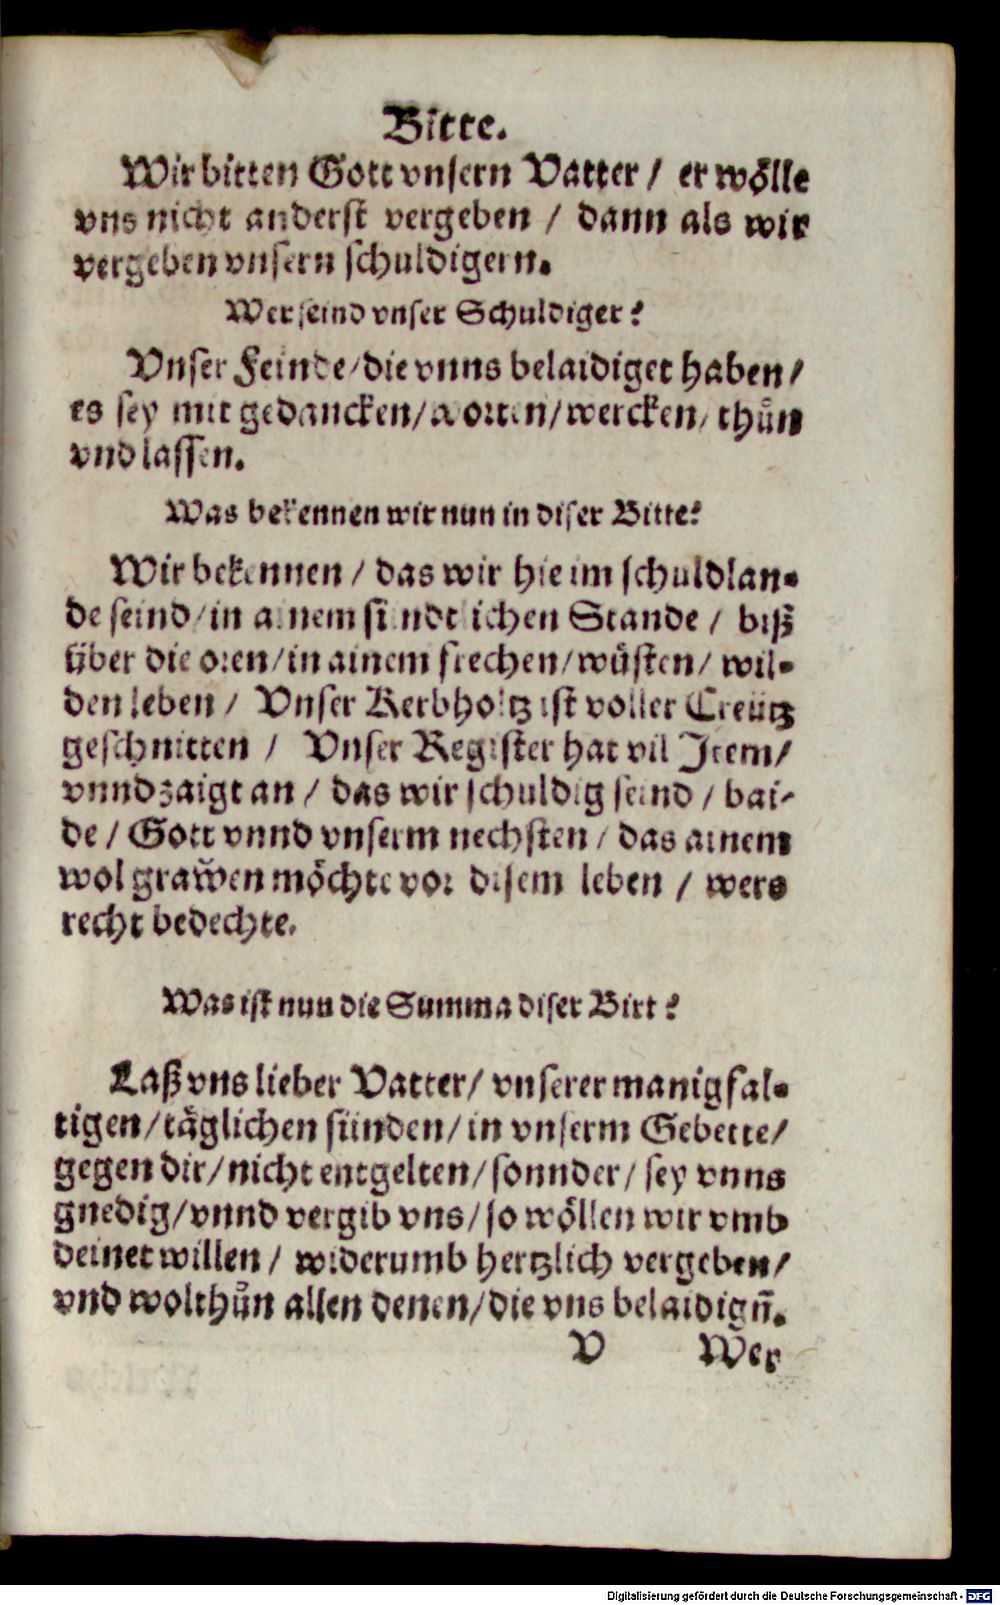 Bitte.
Wir bitten Gott vnsern Vatter / er wölle
vns nicht anderst vergeben / dann als wir
vergeben vnsern schuldigern.
Wer seind vnser Schuldiger?
Vnser Feinde / die vnns belaidiget haben /
es sey mit gedancken / worten / wercken / thůn
vnd lassen.
Was bekennen wir nun in diser Bitte?
Wir bekennen / das wir hie im schuldlan-
de seind / in ainem sündtlichen Stande / biß
über die oren / in ainem frechen / wüsten / wil-
den leben / Vnser Kerbholtz ist voller Creütz
geschnitten / Vnser Register hat vil Item /
vnnd zaigt an / das wir schuldig seind / bai-
de / Gott vnnd vnserm nechsten / das ainem
wol grawen möchte vor disem leben / wers
recht bedechte.
Was ist nun die Summa diser Bitt?
Laß vns lieber Vatter / vnserer manigfal-
tigen / täglichen sünden / in vnserm Gebette /
gegen dir / nicht entgelten / sonnder / sey vnns
gnedig / vnnd vergib vns / so wöllen wir vmb
deinet willen / widerumb hertzlich vergeben /
vnd wolthůn allen denen / die vns belaidigñ.
V Wer
Digitalisierung gefördert durch die Deutsche Forschungsgemeinschaft - DFG